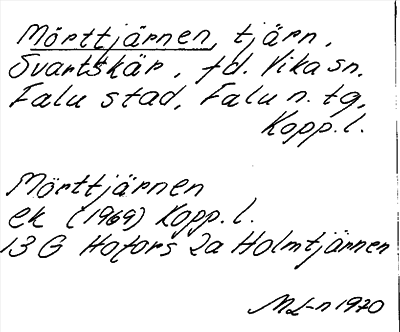 Mörttjärnen, tjärn,
Svartskär, fd. Vika sn,
Falu stad, Falu n. tg,
Kopp. l.
Mörttjärnen
ek (1969) Kopp. l.
13 G Hofors 2a Holmtjärnen
ML-n 1970